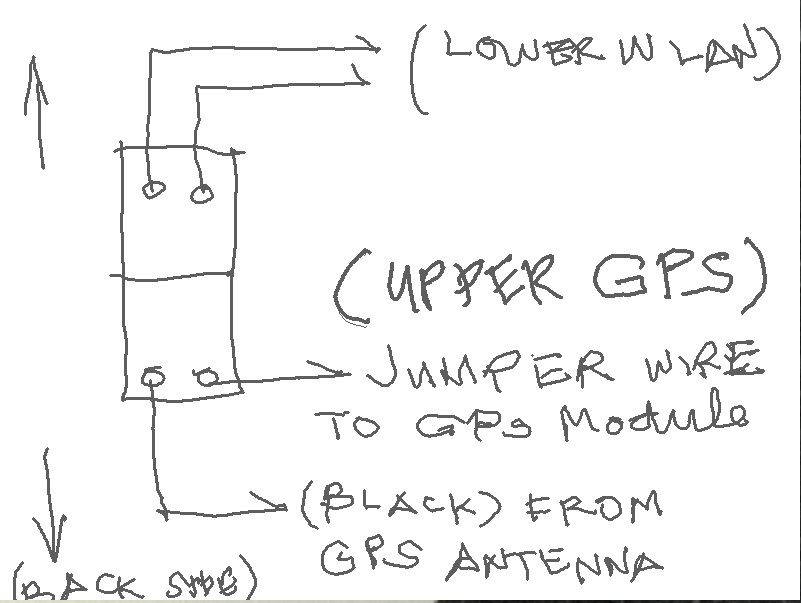 (LOWER W LAN)
(UPPER GPS)
JUMPER WIRE
TO GPS Module
(BLACK) FROM
GPS ANTENNA
(BACK SIDE)